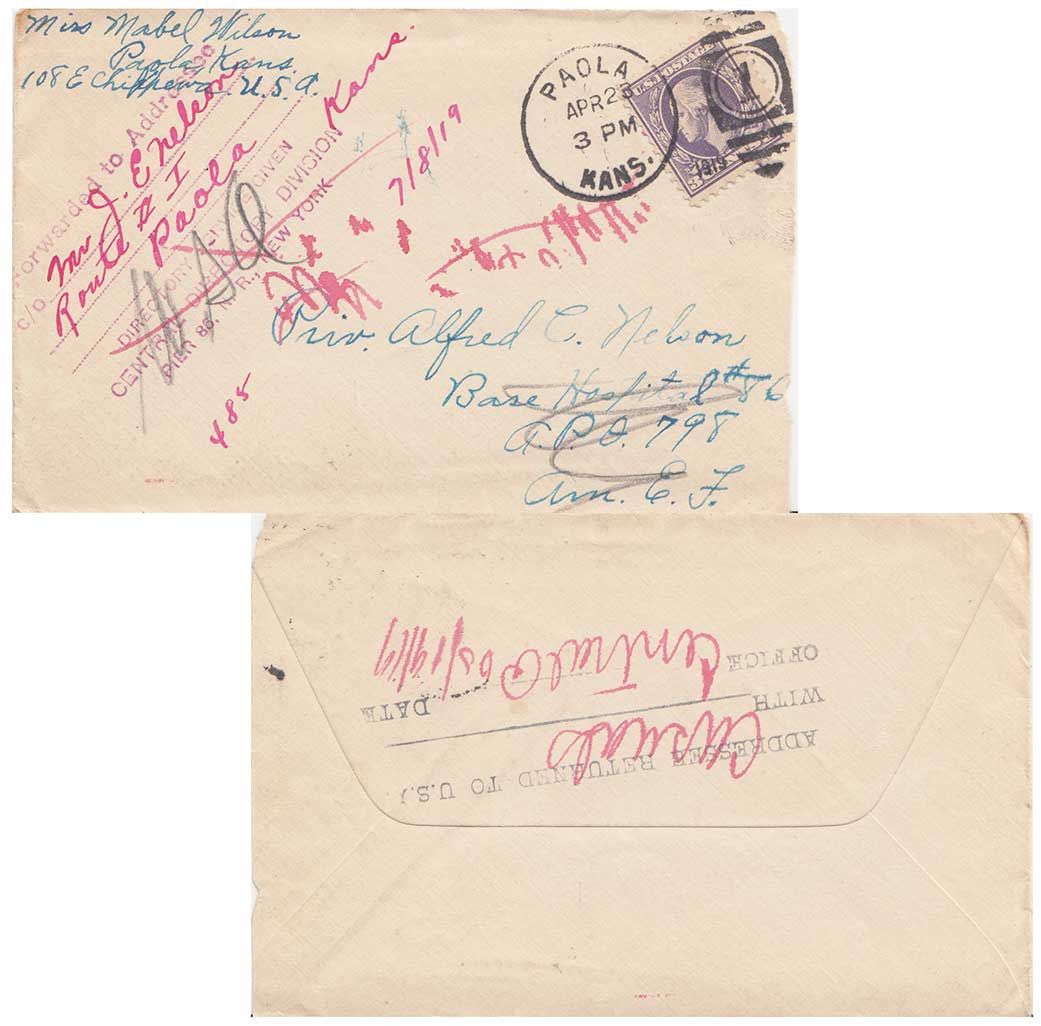 Miss Mabel Wilson
Paola, Kans
108 E Chippewa. U.S.A.
Forwarded to Addressee
c/o Mr J. E Nelson
Route # I
Paola Kans.
DIRECTORY GIVEN
CENTRAL DIRECTORY DIVISION
PIER 86, N. R., NEW YORK
7/8/19
485
PAOLA
APR 23
3 PM
KANS.
1919
U.S. POSTAGE
1
Priv. Alfred C. Nelson
Base Hospital #86
A.P.O. 798
Am. E. F.
ADDRESSEE RETURNED TO U.S.
WITH Casuals
OFFICE Central P O DATE 5/19/19